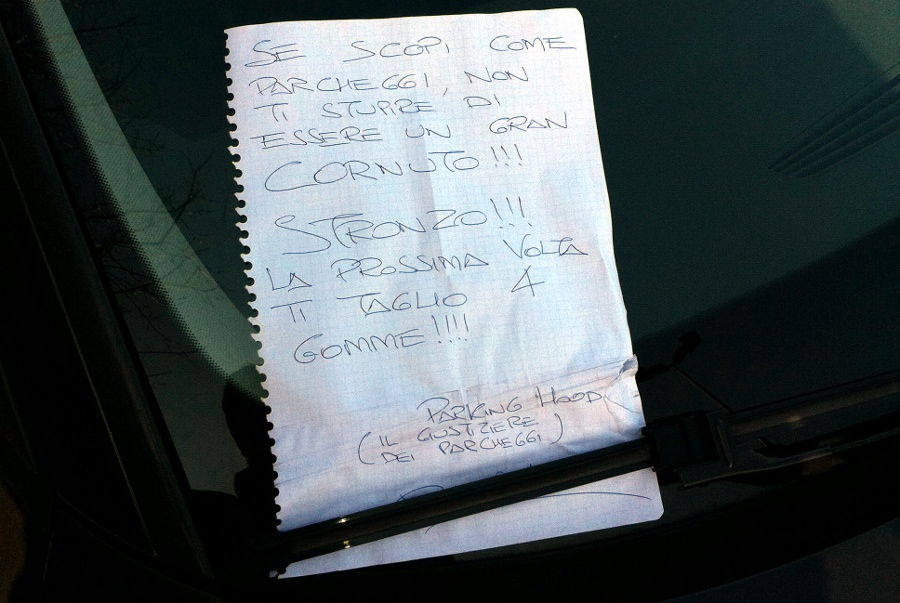 SE SCOPI COME
PARCHEGGI, NON
TI STUPIRE DI
ESSERE UN GRAN
CORNUTO!!!
STRONZO!!!
LA PROSSIMA VOLTA
TI TAGLIO 4
GOMME!!!!
PARKING HOOD
(IL GIUSTIZIERE
DEI PARCHEGGI)